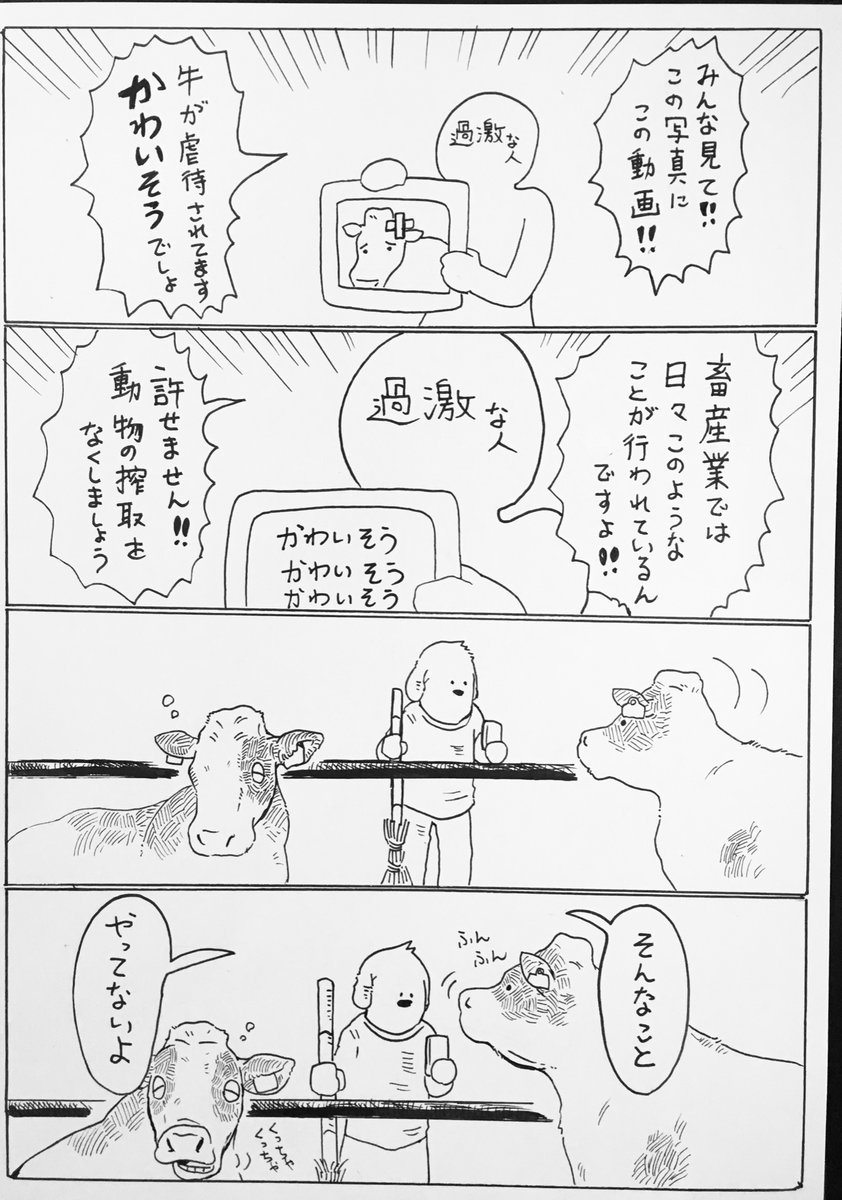 みんな見て!!
この写真に
この動画!!
過激な人
牛が虐待されてます
かわいそうでしょ
畜産業では
日々このような
ことが行われているん
ですよ!!
過激な人
かわいそう
かわいそう
かわいそう
許せません!!
動物の搾取を
なくしましょう
そんなこと
ふん
ふん
やってないよ
くっちゃ
くっちゃ